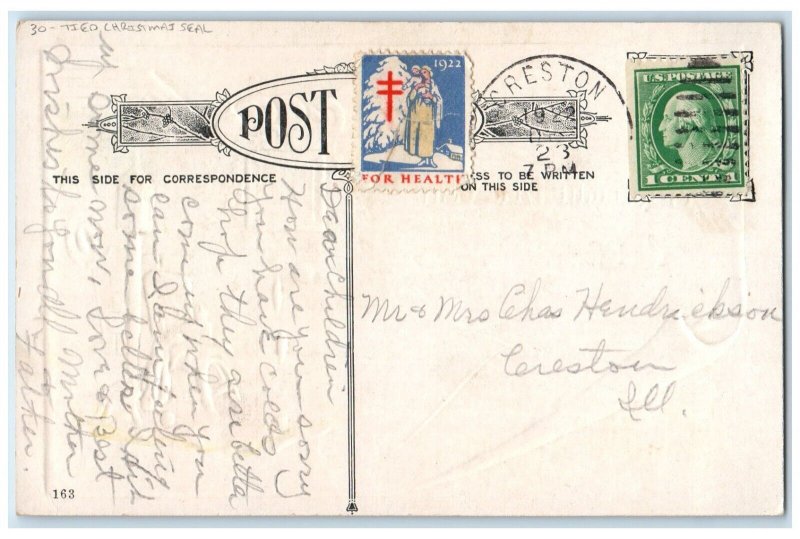 30 - TIED CHRISTMAS SEAL
POST
1922
FOR HEALTH
CRESTON
23
7 PM
U.S. POSTAGE
1 CENT 1
THIS SIDE FOR CORRESPONDENCE
SS TO BE WRITTEN
ON THIS SIDE
Dear Children
How are you - sorry
you have colds
hope they are better
come up when you
can I am feeling
some better
now, Love & Best
Wishes to you all Mother
Father.
Mr & Mrs Chas Hendrickson
Creston
Ill.
163